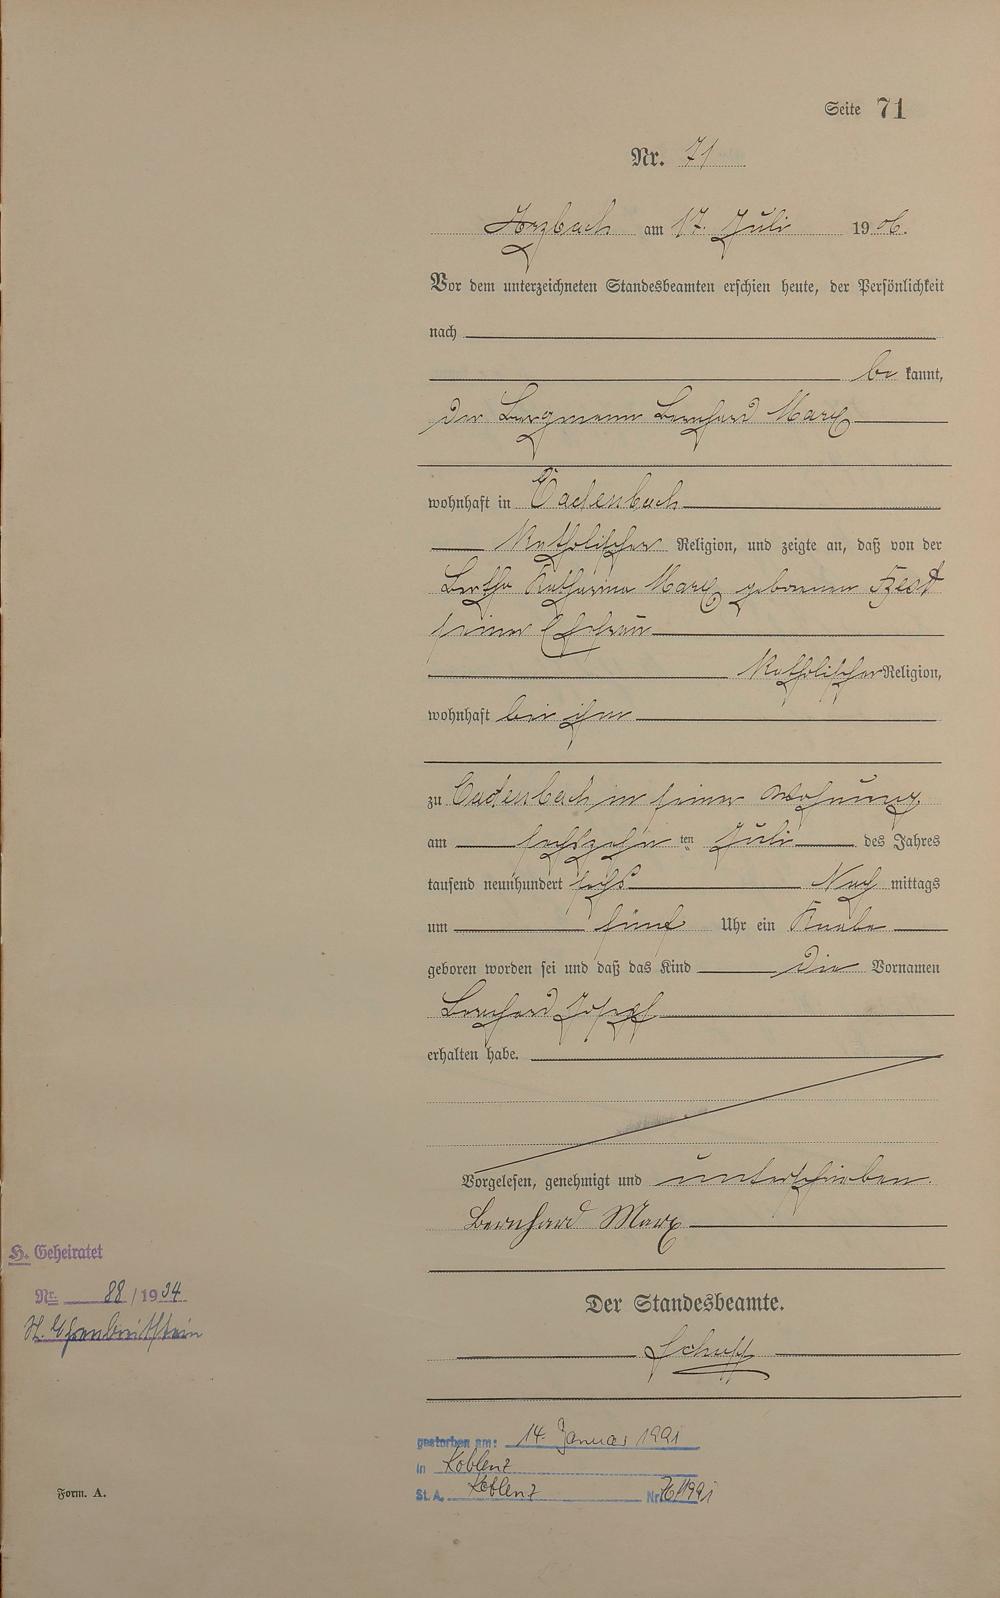 Seite 71
Nr. 71
Arzbach am 17. Juli 1906.
Vor dem unterzeichneten Standesbeamten erschien heute, der Persönlichkeit
nach
be kannt,
der Bergmann Bernhard Marx
wohnhaft in Cadenbach
katholischer Religion, und zeigte an, daß von der
Bertha Katharina Marx geborenen
seiner Ehefrau
katholischer Religion,
wohnhaft bei ihm
zu Cadenbach in seiner Wohnung
am sechszehn ten Juli des Jahres
tausend neunhundert sechs Nach mittags
um fünf Uhr ein Knabe
geboren worden sei und daß das Kind die Vornamen
Bernhard Josef
erhalten habe.
Vorgelesen, genehmigt und unterschrieben.
Bernhard Marx
H. Geheiratet
Nr. 88 / 1934
St. Ehrenbreitstein
Der Standesbeamte.
gestorben am: 14. Januar 1991
in Koblenz
St. A. Koblenz Nr. 76/1991
Form. A.